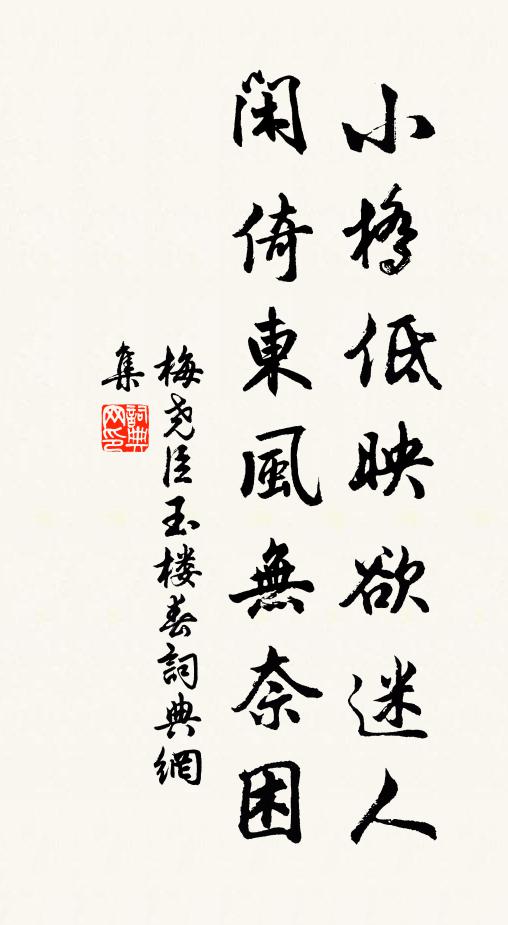 小橋低映欲迷人
閑倚東風無奈困
梅尧臣玉楼春詞典網
集
詞典
网印